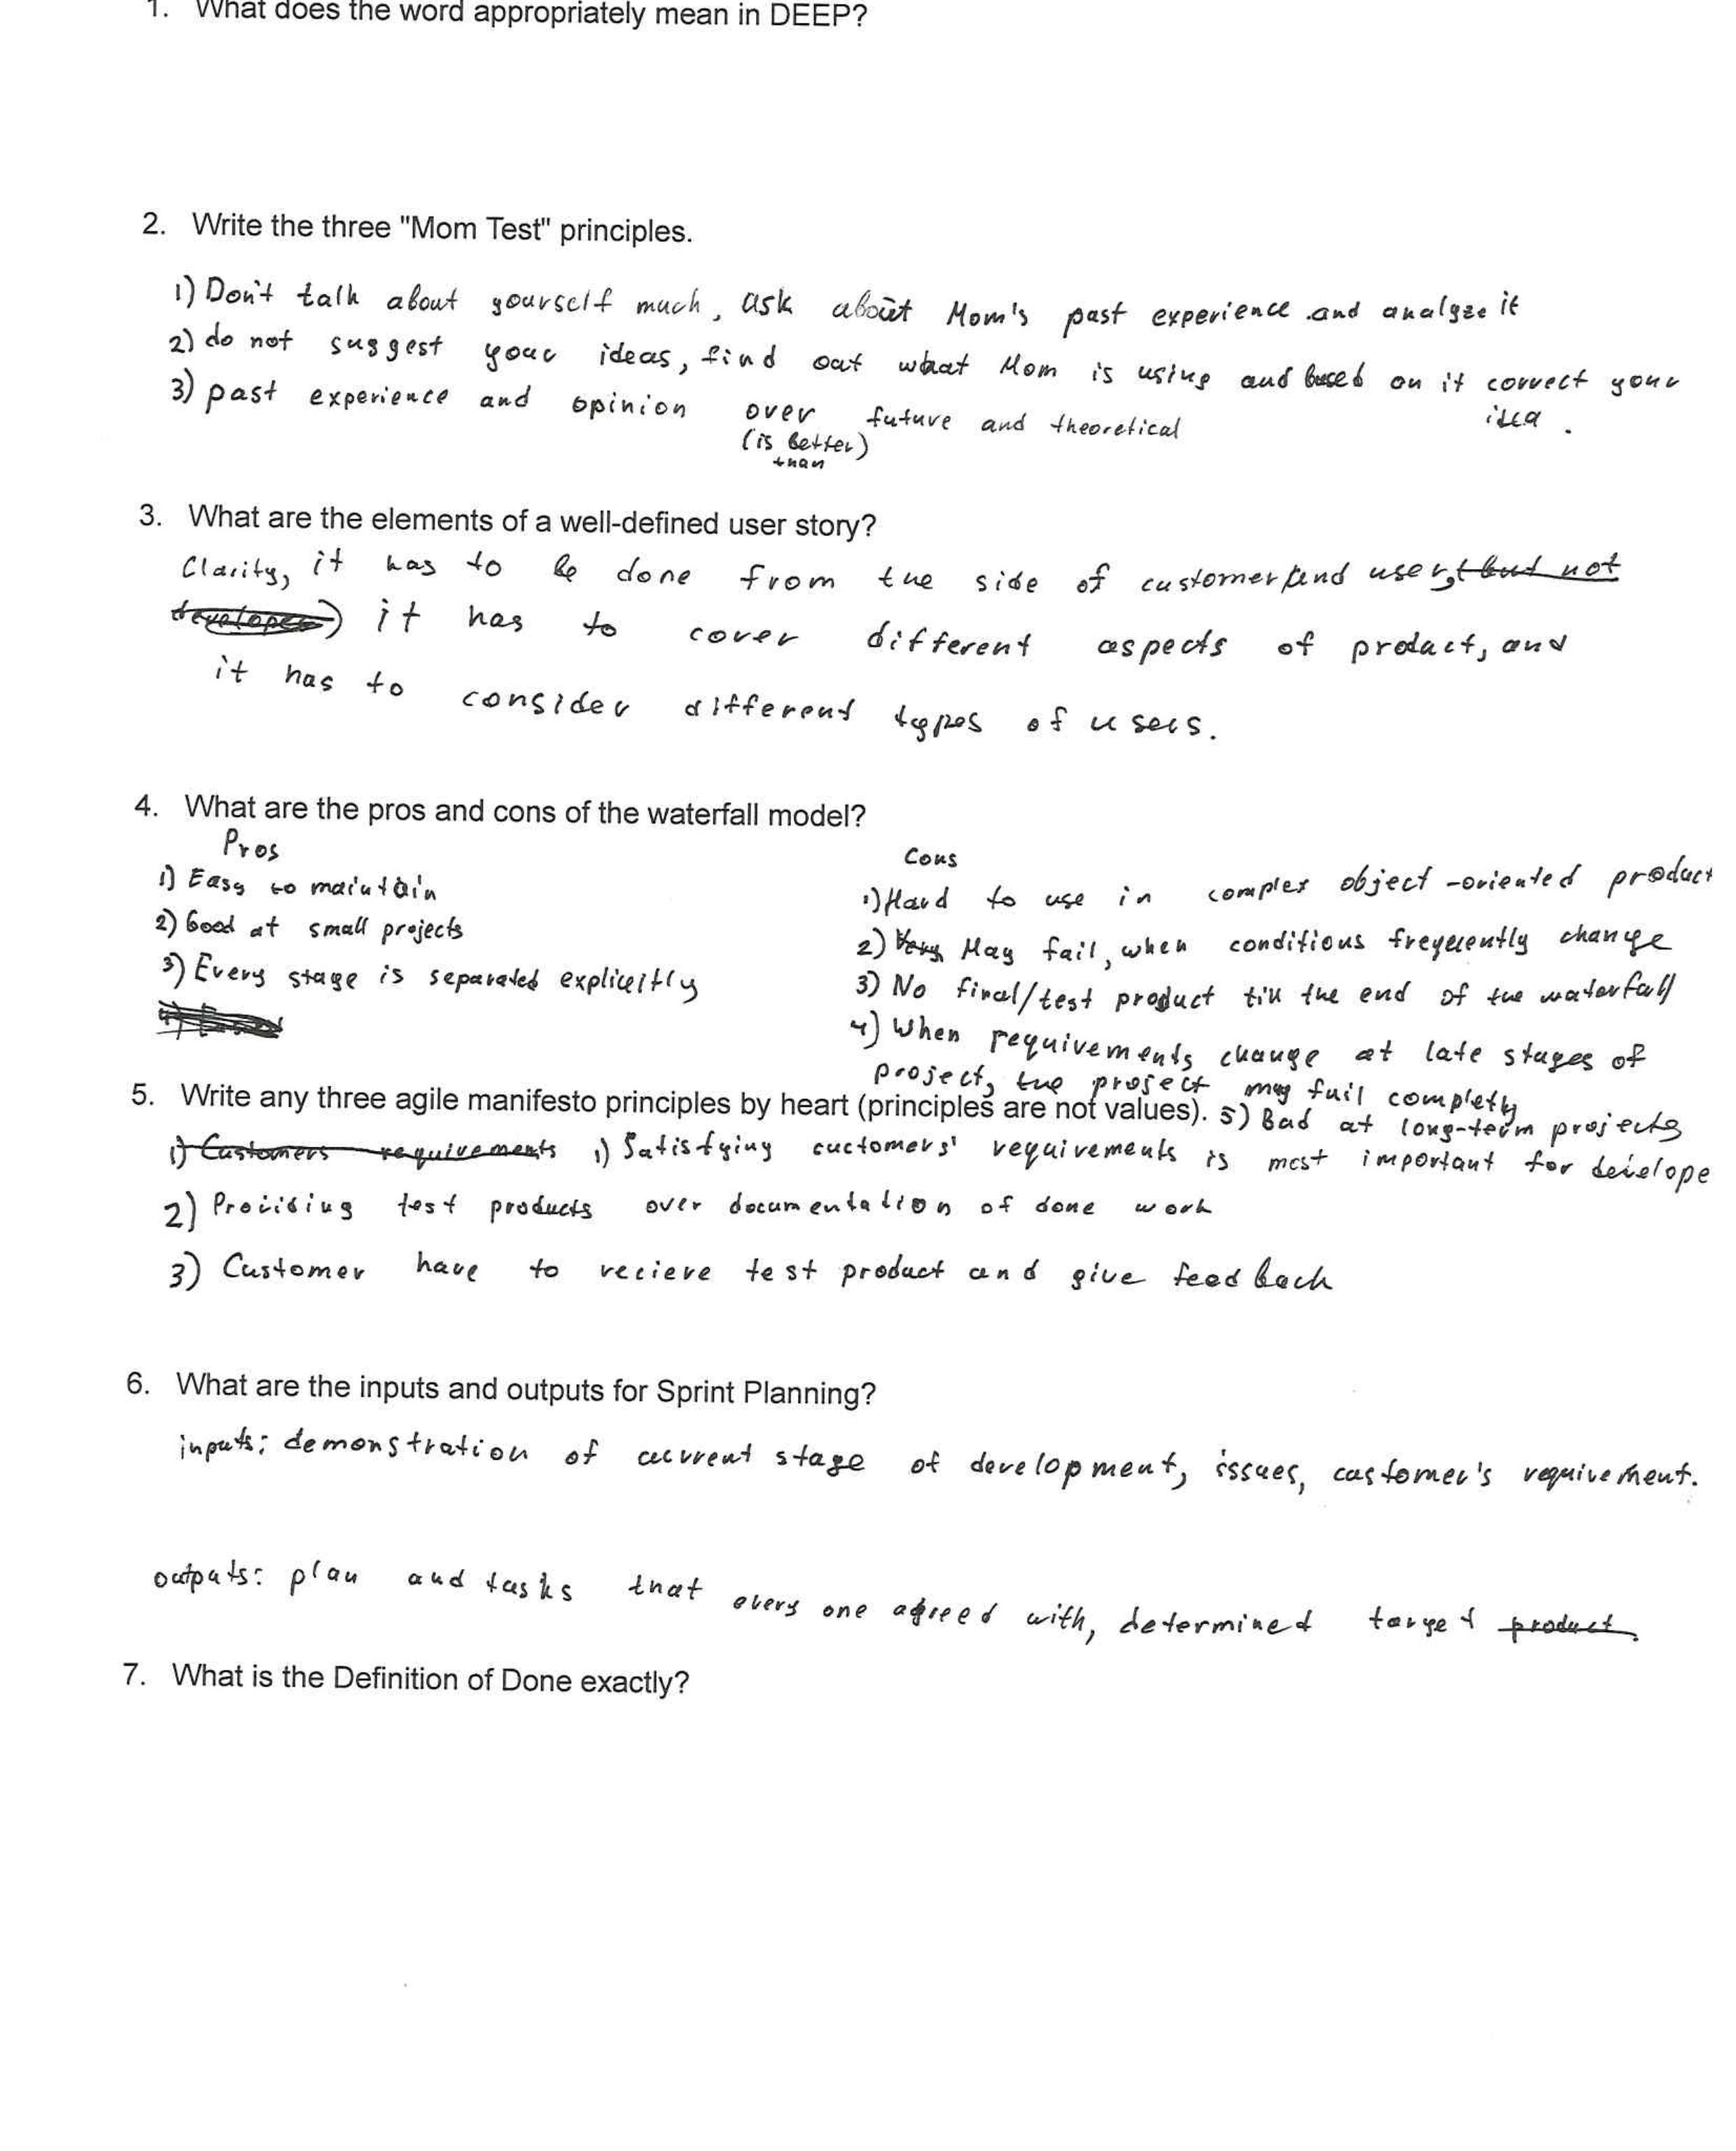 1. What does the word appropriately mean in DEEP?
2. Write the three "Mom Test" principles.
1) Don't talk about yourself much, ask about Mom's past experience and analyze it
2) do not suggest your ideas, find out what Mom is using and based on it correct your
idea.
3) past experience and opinion over future and theoretical
(is better)
than
3. What are the elements of a well-defined user story?
Clarity, it has to be done from the side of customer/end user, but not
developer) it has to cover different aspects of product, and
it has to consider different types of users.
4. What are the pros and cons of the waterfall model?
Pros
1) Easy to maintain
2) Good at small projects
3) Every stage is separated explicitly
Cons
1) Hard to use in complex object-oriented product
2) Very May fail, when conditions frequently change
3) No final/test product till the end of the waterfall
4) When requirements change at late stages of
project, the project may fail completly
5) Bad at long-term projects
5. Write any three agile manifesto principles by heart (principles are not values).
1) Customers requirements 1) Satisfying cuctomers' requirements is most important for develope
2) Providing test products over documentation of done work
3) Customer have to recieve test product and give feedback
6. What are the inputs and outputs for Sprint Planning?
inputs: demonstration of current stage of development, issues, customer's requirement.
outputs: plan and tasks that every one agreed with, determined target product.
7. What is the Definition of Done exactly?